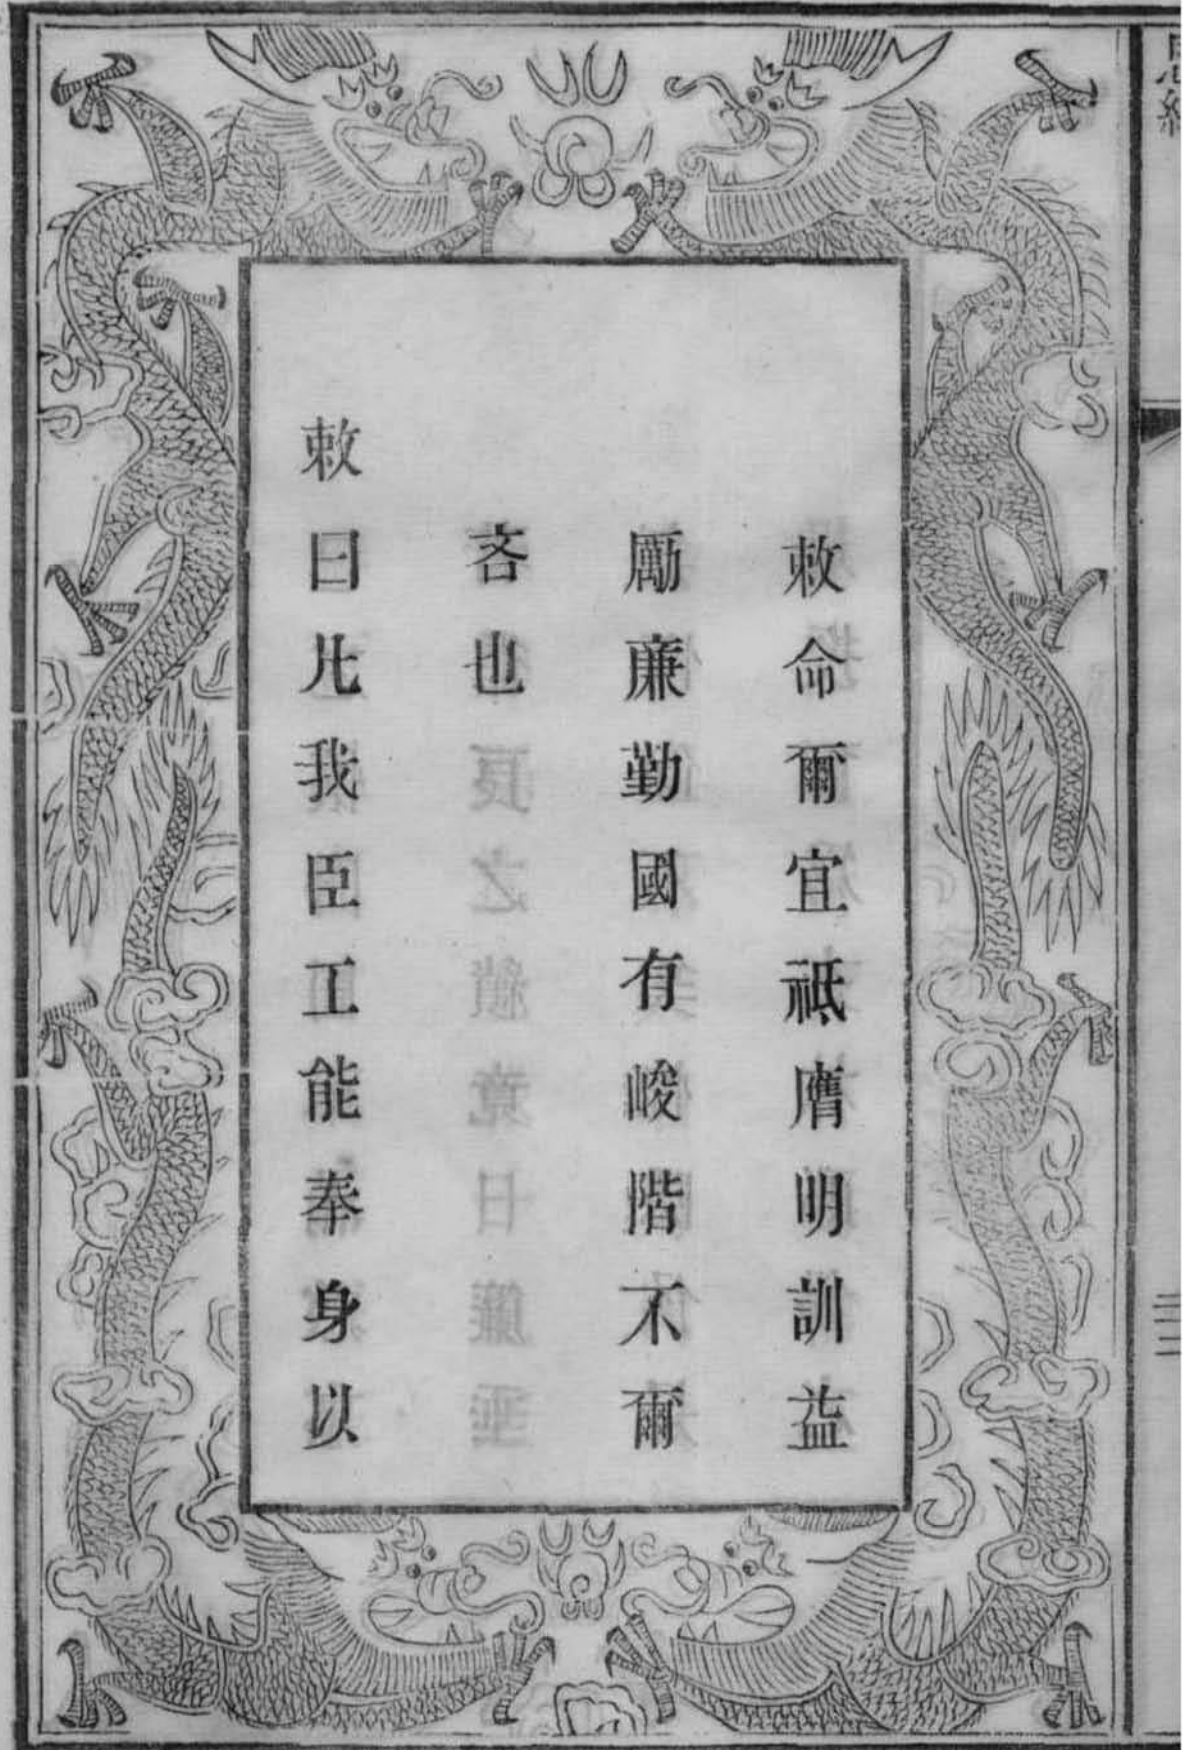 敕命爾宜祗膺明訓益
勵廉勤國有峻階不爾
吝也
敕曰凡我臣工能奉身以